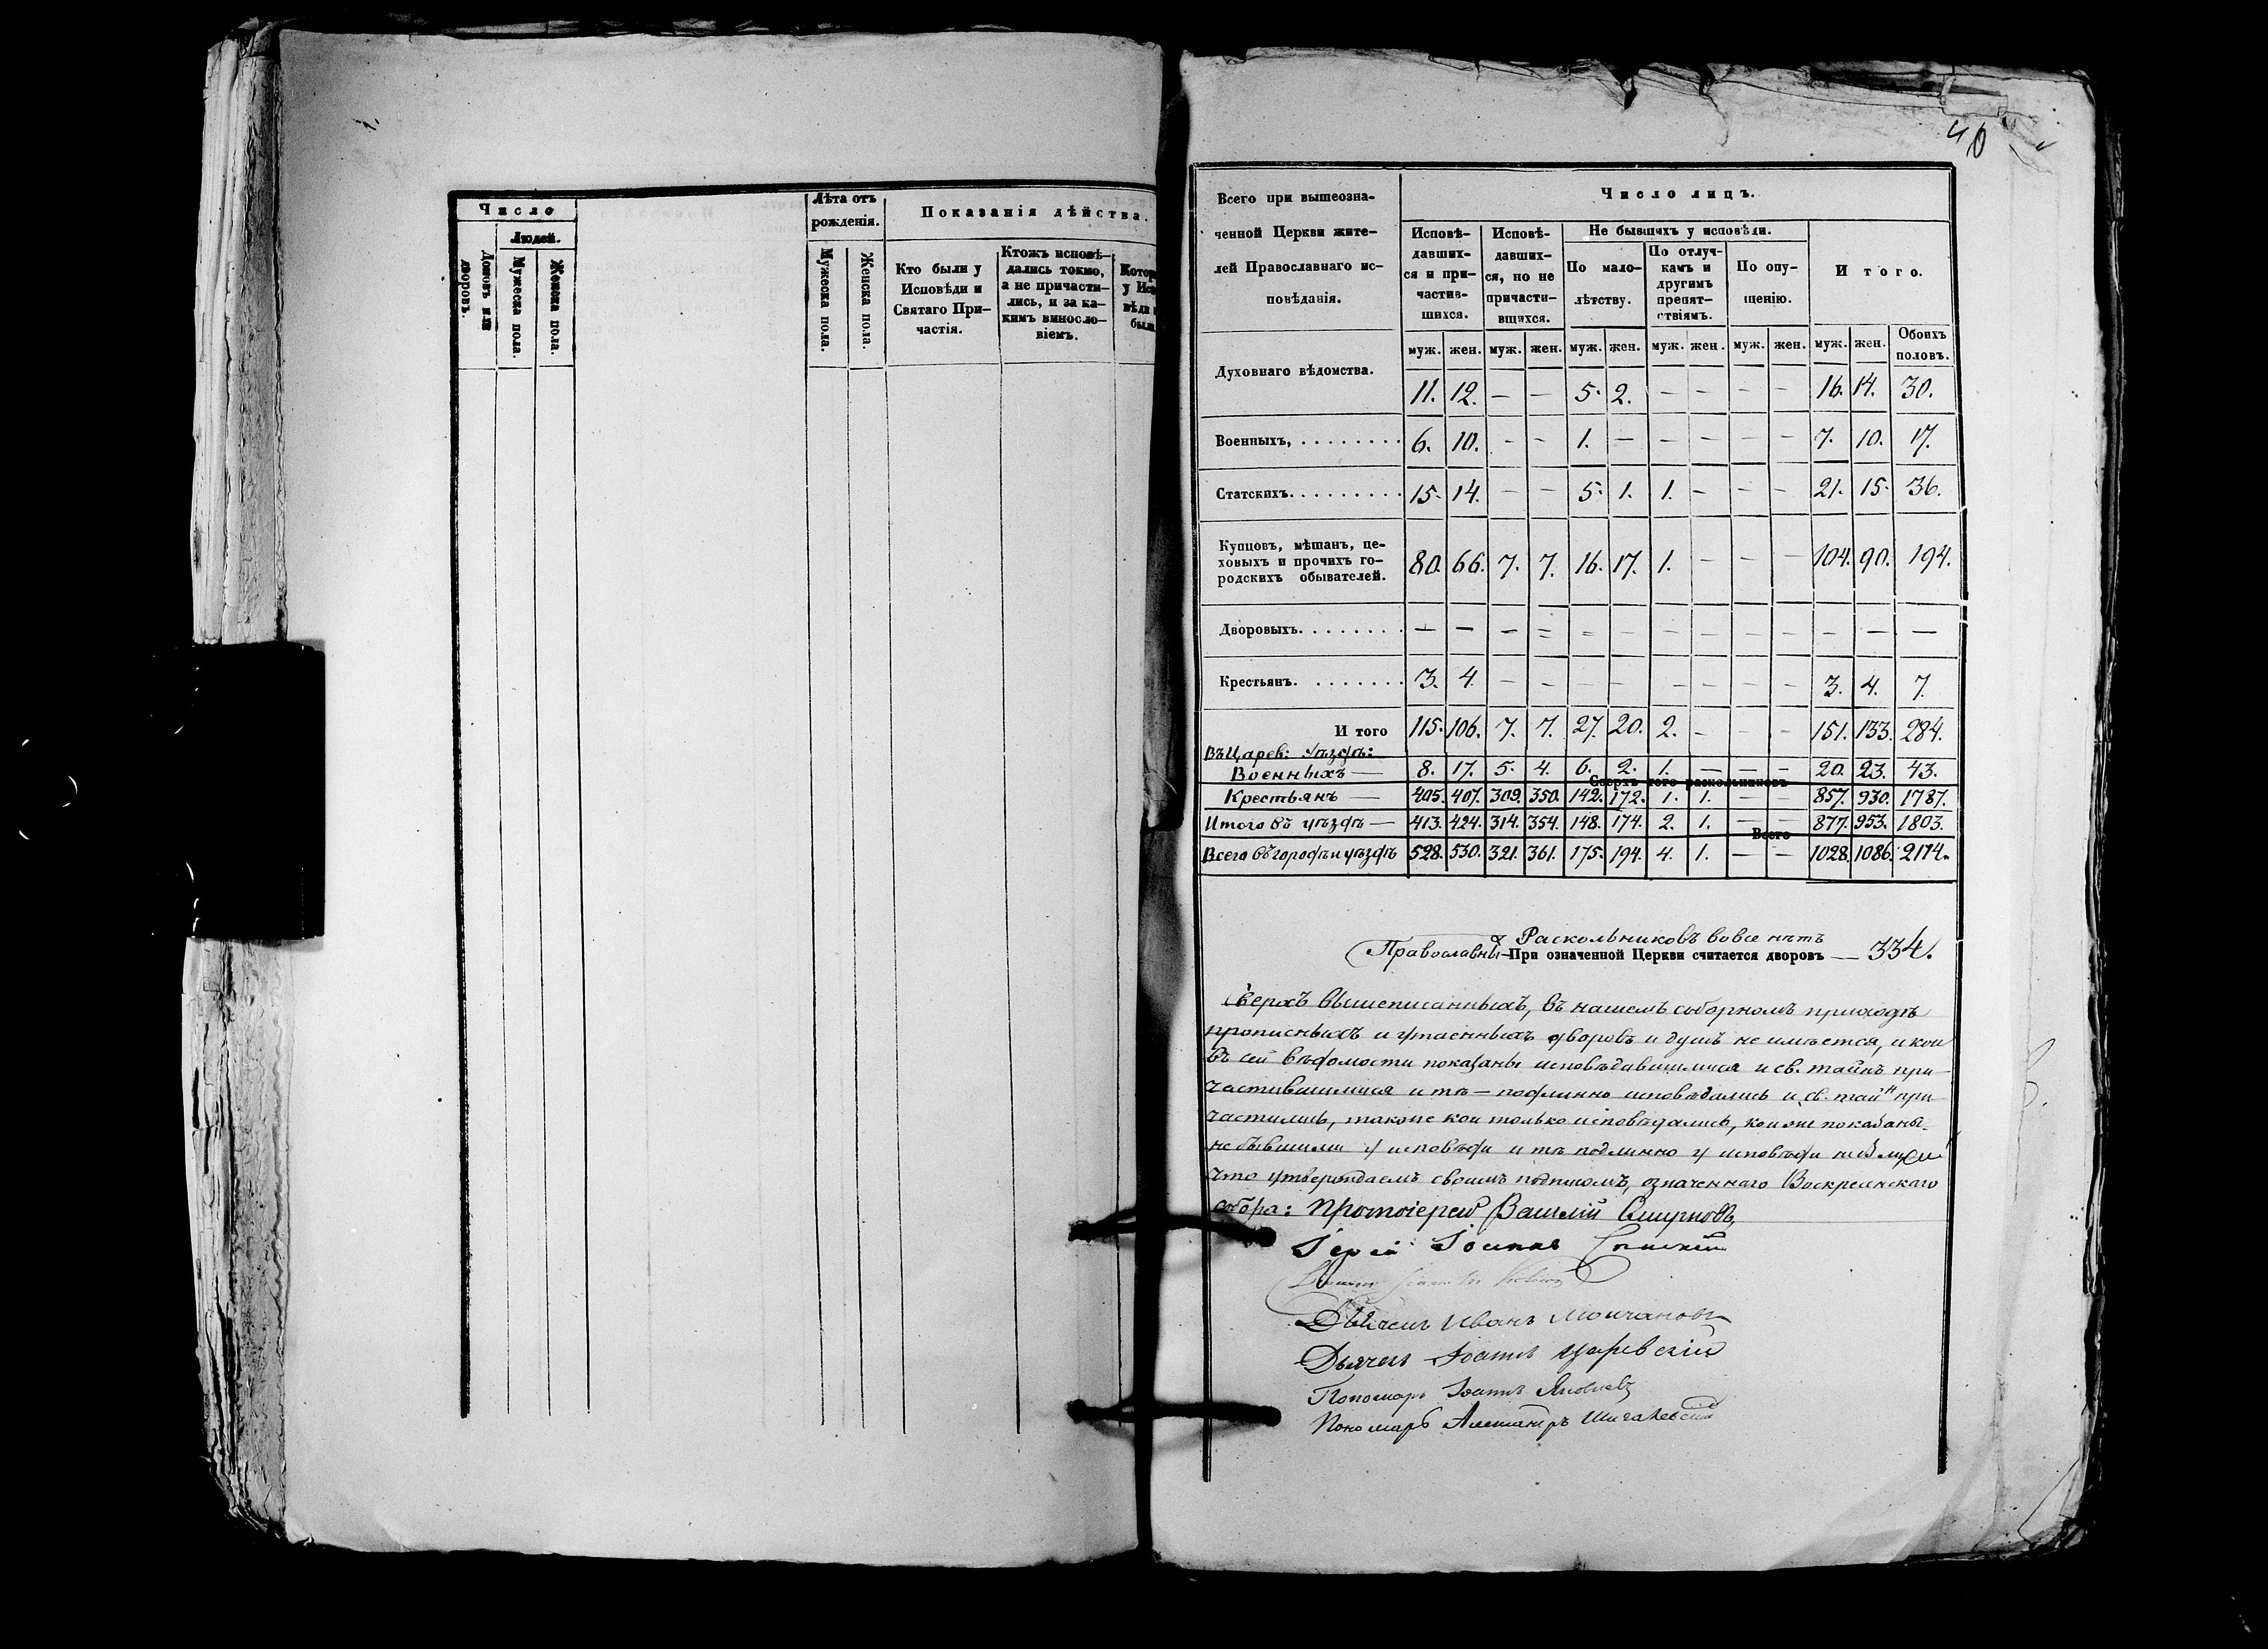 Число
Людей.
Домовъ или дворовъ.
Мужеска пола.
Женска пола.
Лѣта отъ рожденія.
Мужеска пола.
Женска пола.
Показанія дѣйства.
Кто были у
Исповѣди и
Святаго При-
частія.
Ктожъ исповѣ-
дались токмо,
а не причасти-
лись, и за ка-
кимъ винослo-
віемъ.
40
Всего при вышеозна-
ченной Церкви жите-
лей Православнаго ис-
повѣданія.
Число лицъ.
Исповѣ-
давших-
ся и при-
частив-
шихся.
Исповѣ-
давших-
ся, но не
причасти-
вшихся.
Не бывшихъ у исповѣди.
По мало-
лѣтству.
По отлуч-
камъ и
другимъ
препят-
ствіямъ.
По опу-
щенію.
Итого.
муж. жен. муж. жен. муж. жен. муж. жен. муж. жен. муж. жен. Обоихъ половъ.
Духовнаго вѣдомства. 11. 12. — — 5. 2. — — — — 16. 14. 30.
Военныхъ, . . . . . . . . 6. 10. — — 1. — — — — — 7. 10. 17.
Статскихъ. . . . . . . . . 15. 14. — — 5. 1. 1. — — — 21. 15. 36.
Купцовъ, мѣшанъ, це-
ховыхъ и прочихъ го-
родскихъ обывателей. 80. 66. 7. 7. 16. 17. 1. — — — 104. 90. 194.
Дворовыхъ. . . . . . . . — — — = = — — — — — — — —
Крестьянъ. . . . . . . . 3. 4. — — — — — — — — 3. 4. 7.
И того 115. 106. 7. 7. 27. 20. 2. — — — 151. 133. 284.
Въ Царев: уѣздѣ:
Военныхъ — 8. 17. 5. 4. 6. 2. 1. — — — 20. 23. 43.
Сверхъ того раскольниковъ
Крестьянъ — 405. 407. 309. 350. 142. 172. 1. 1. — — 857. 930. 1787.
Итого въ уѣздѣ — 413. 424. 314. 354. 148. 174. 2. 1. — — 877. 953. 1803.
Всего
Всего въ городѣ и уѣздѣ 528. 530. 321. 361. 175. 194. 4. 1. — — 1028. 1086. 2114.
Раскольниковъ вовсе нѣтъ
Православны При означенной Церкви считается дворовъ — 334.
Сверхъ вышеписанныхъ, въ нашемъ соборномъ приходѣ
прописныхъ и утаенныхъ дворовъ и душъ не имѣется, и кои
въ сей вѣдомости показаны исповѣдавшимися и св. тайнъ при-
частившимися и тѣ — подлинно исповѣдались и св. тайн при-
частились, также кои только исповѣдались, кои же показаны
не бывшими у исповѣди и тѣ подлинно у исповѣди не были
что утверждаемъ своимъ подписомъ, означеннаго Воскресенскаго
собора: Протоіерей Василій Смирновъ,
Іерей Іоаннъ
Дьячекъ Иванъ Молчановъ
Дьячекъ Іоаннъ Царевскій
Пономарь Іоаннъ Яковлевъ
Пономарь Александръ